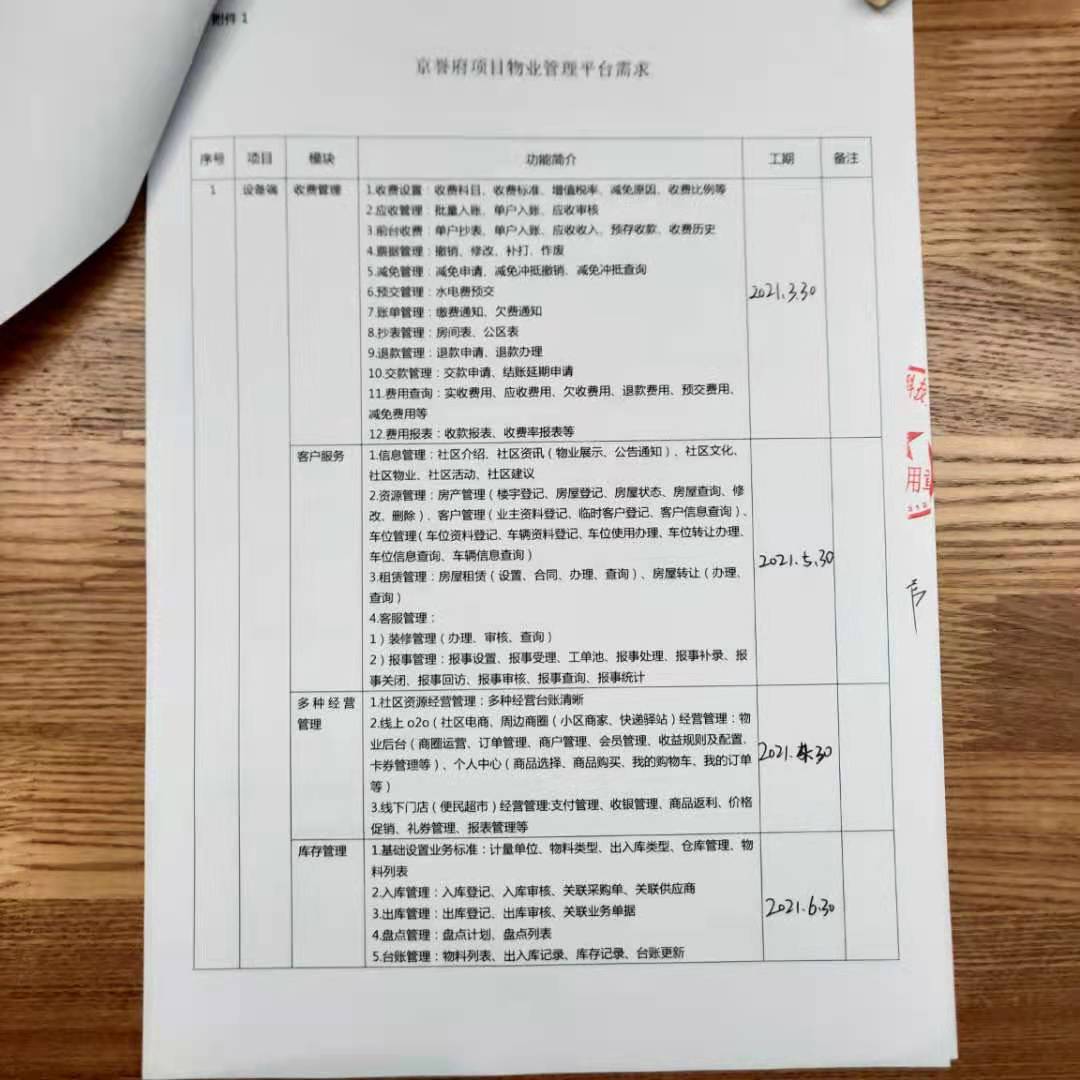 附件 1
京誉府项目物业管理平台需求
序号 项目 模块 功能简介 工期 备注
1 设备端 收费管理 1.收费设置：收费科目、收费标准、增值税率、减免原因、收费比例等
2.应收管理：批量入账、单户入账、应收审核
3.前台收费：单户抄表、单户入账、应收收入、预存收款、收费历史
4.票据管理：撤销、修改、补打、作废
5.减免管理：减免申请、减免冲抵撤销、减免冲抵查询
6.预交管理：水电费预交
2021.3.30
7.账单管理：缴费通知、欠费通知
8.抄表管理：房间表、公区表
9.退款管理：退款申请、退款办理
10.交款管理：交款申请、结账延期申请
11.费用查询：实收费用、应收费用、欠收费用、退款费用、预交费用、
减免费用等
12.费用报表：收款报表、收费率报表等
客户服务 1.信息管理：社区介绍、社区资讯（物业展示、公告通知）、社区文化、
社区物业、社区活动、社区建议
2.资源管理：房产管理（楼宇登记、房屋登记、房屋状态、房屋查询、修
改、删除）、客户管理（业主资料登记、临时客户登记、客户信息查询）、
车位管理（车位资料登记、车辆资料登记、车位使用办理、车位转让办理、
车位信息查询、车辆信息查询）
2021.5.30
3.租赁管理：房屋租赁（设置、合同、办理、查询）、房屋转让（办理、
查询）
4.客服管理：
1）装修管理（办理、审核、查询）
2）报事管理：报事设置、报事受理、工单池、报事处理、报事补录、报
事关闭、报事回访、报事审核、报事查询、报事统计
多种经营
管理
1.社区资源经营管理：多种经营台账清晰
2.线上 o2o（社区电商、周边商圈（小区商家、快递驿站）经营管理：物
业后台（商圈运营、订单管理、商户管理、会员管理、收益规则及配置、
卡券管理等）、个人中心（商品选择、商品购买、我的购物车、我的订单
等）
3.线下门店（便民超市）经营管理:支付管理、收银管理、商品返利、价格
促销、礼券管理、报表管理等
库存管理 1.基础设置业务标准：计量单位、物料类型、出入库类型、仓库管理、物
料列表
2.入库管理：入库登记、入库审核、关联采购单、关联供应商
2021.6.30
3.出库管理：出库登记、出库审核、关联业务单据
4.盘点管理：盘点计划、盘点列表
5.台账管理：物料列表、出入库记录、库存记录、台账更新
用章